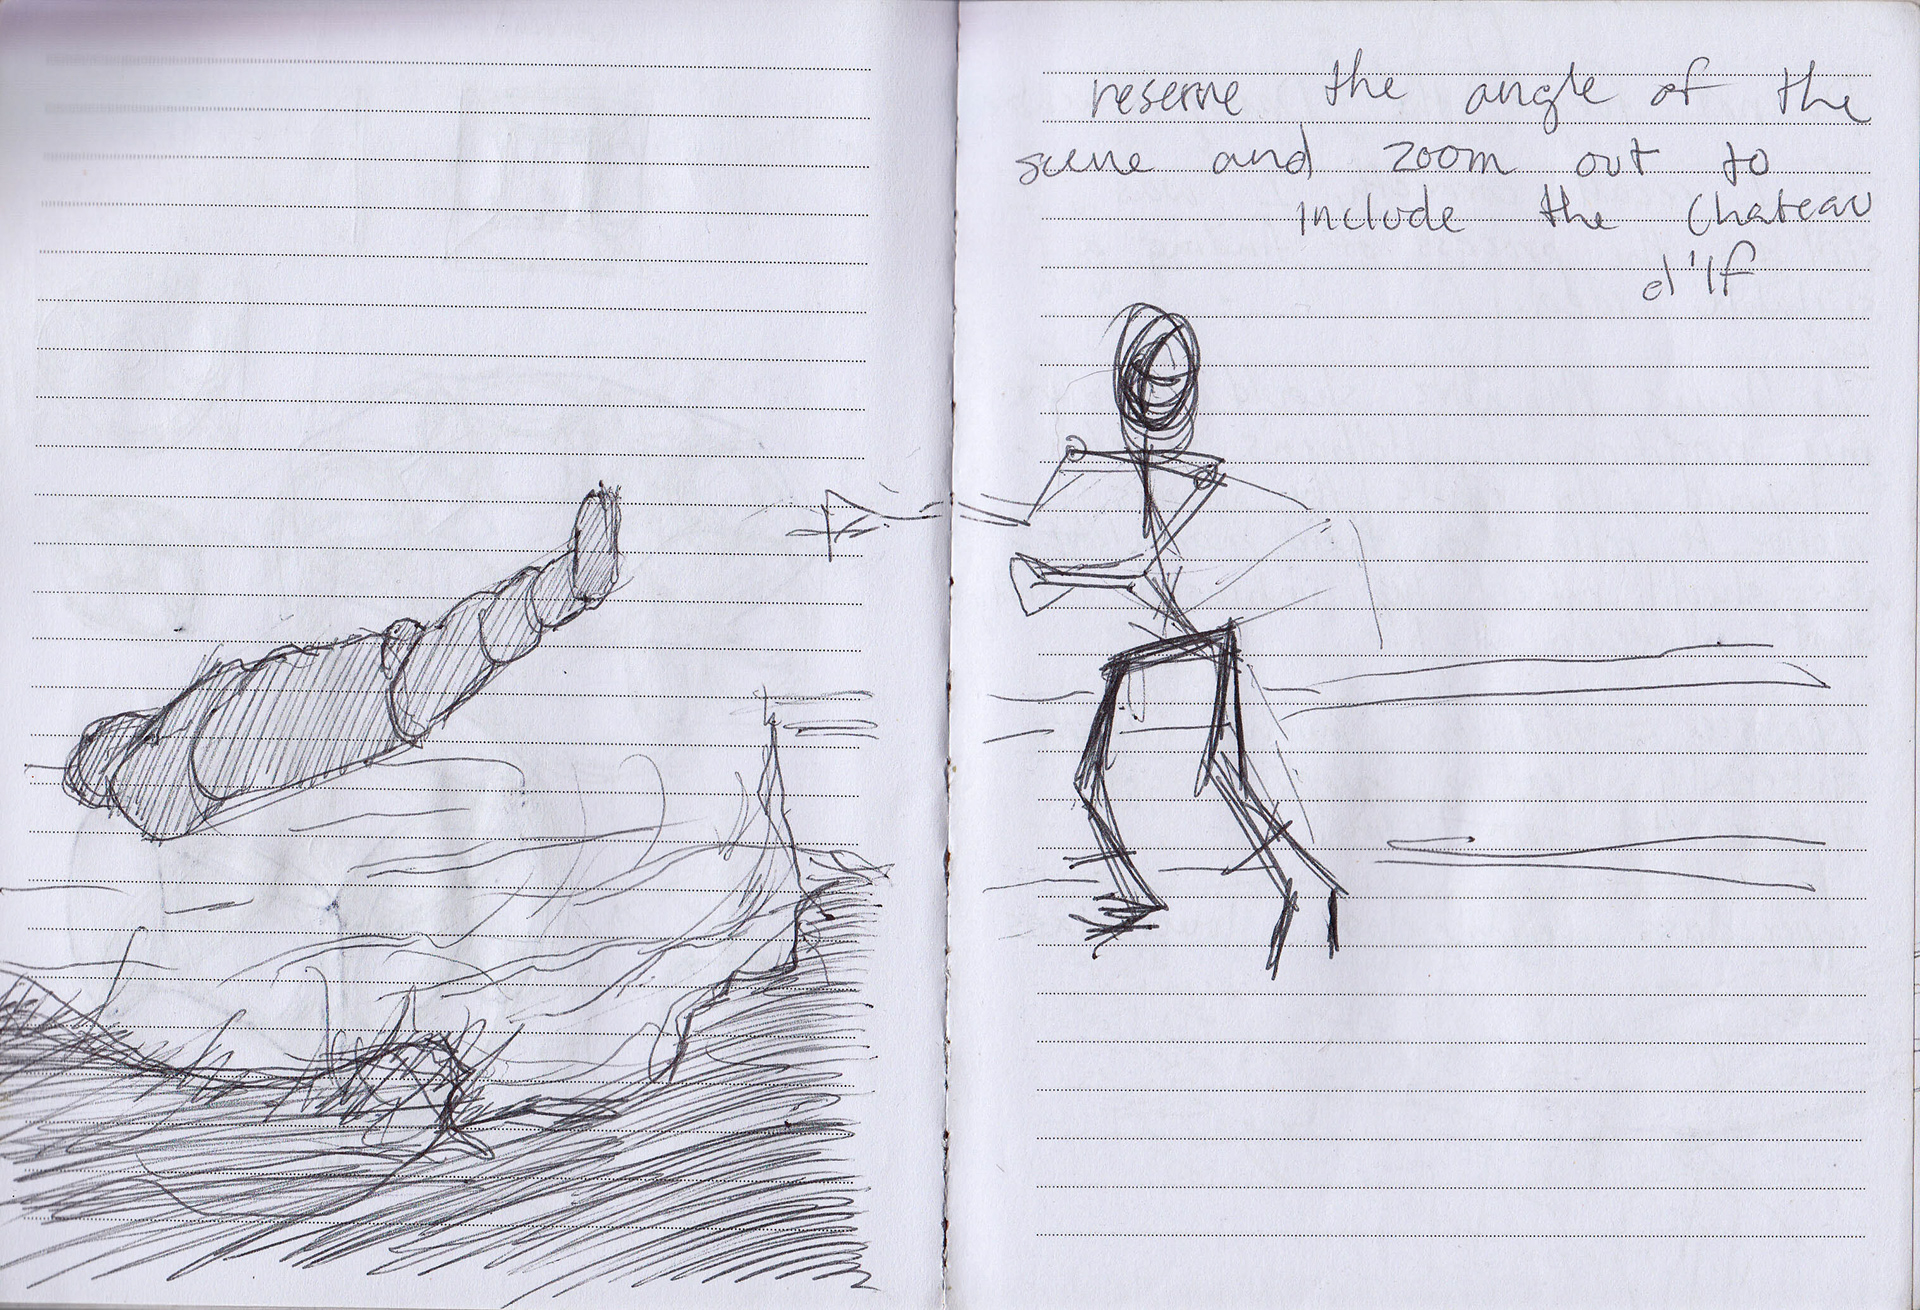 reserve the angle of the
scene and zoom out to
include the Chateau
d'If